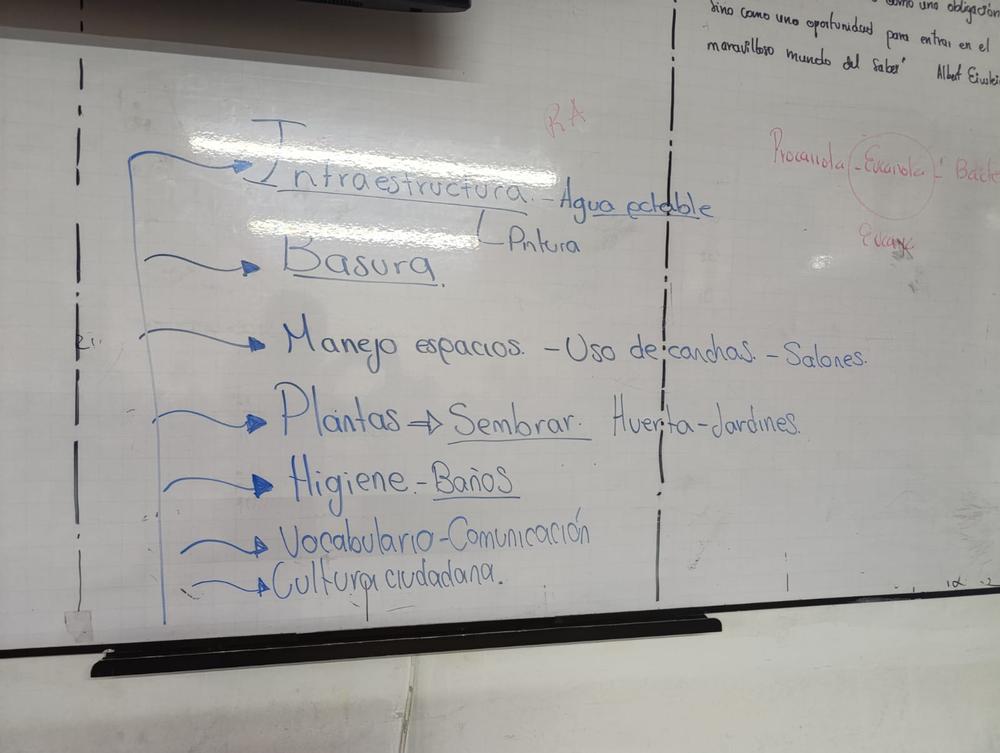 como una obligación
sino como una oportunidad para entrar en el
maravilloso mundo del saber" Albert Einstein
RA
Infraestructura. - Agua potable
Pintura
Basura.
Manejo espacios. - Uso de canchas. - Salones.
Plantas ⇒ Sembrar. Huerta - Jardines.
Higiene. - Baños
Vocabulario - Comunicación
Cultura ciudadana.
Procariota - Eucariota -